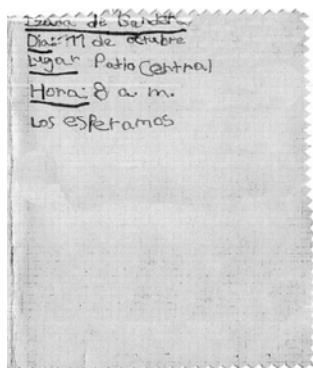 Izada de bandera
Día: 11 de octubre
Lugar Patio Central
Hora: 8 a. m.
Los esperamos